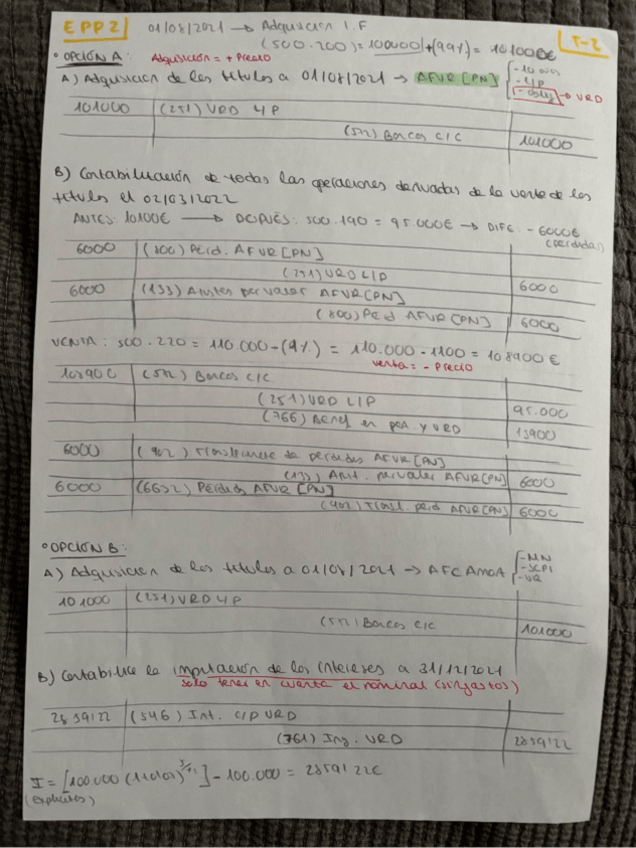 EPP2 01/08/2021 → Adquisición I.F T-2
(500·200) = 100000 + (1%) = 101000€
• OPCIÓN A: Adquisición = + Precio
A) Adquisición de los títulos a 01/08/2021 → AFVR [PN] - L/P → VRD
101000 (251) VRD L/P
(572) Bancos C/C 101000
B) Contabilización de todas las operaciones derivadas de la venta de los
títulos el 02/03/2022
ANTES: 101000€ → DESPUÉS: 500·190 = 95.000€ → DIFE: -6000€
(pérdidas)
6000 (800) Pérd. AFVR [PN]
(251) VRD L/P 6000
6000 (133) Ajustes por valor AFVR [PN]
(800) Pérd AFVR [PN] 6000
VENTA: 500·220 = 110.000 - (1%) = 110.000 - 1100 = 108900€
venta = - Precio
108900 (572) Bancos C/C
(251) VRD L/P 95.000
(766) Benef en y VRD 13900
6000 (902) Transferencia de pérdidas AFVR [PN]
(133) Ajust. por valor AFVR [PN] 6000
6000 (6632) Pérdidas AFVR [PN]
(902) Transf. perd AFVR [PN] 6000
• OPCIÓN B:
A) Adquisición de los títulos a 01/08/2021 → AFCAmoA
101000 (251) VRD L/P
(572) Bancos C/C 101000
B) Contabilice la imputación de los intereses a 31/12/2021
solo tener en cuenta el nominal (sin gastos)
2859'22 (546) Int. C/P VRD
(761) Ing. VRD 2859'22
- 100.000 = 2859'22€
(explícitos)